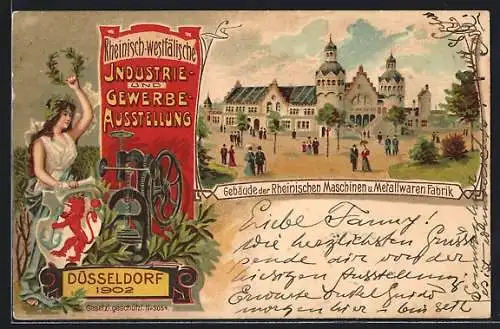 Rheinisch-westfälische
INDUSTRIE-
UND
GEWERBE-
AUSSTELLUNG
Gebäude der Rheinischen Maschinen u. Metallwaren Fabrik
DÜSSELDORF
1902
Gesetzl. geschützt.
Liebe Fanny!
Die herzlichsten Grüsse
sende dir von der
hiesigen Ausstellung.
Erwarte Onkel
morgen hier